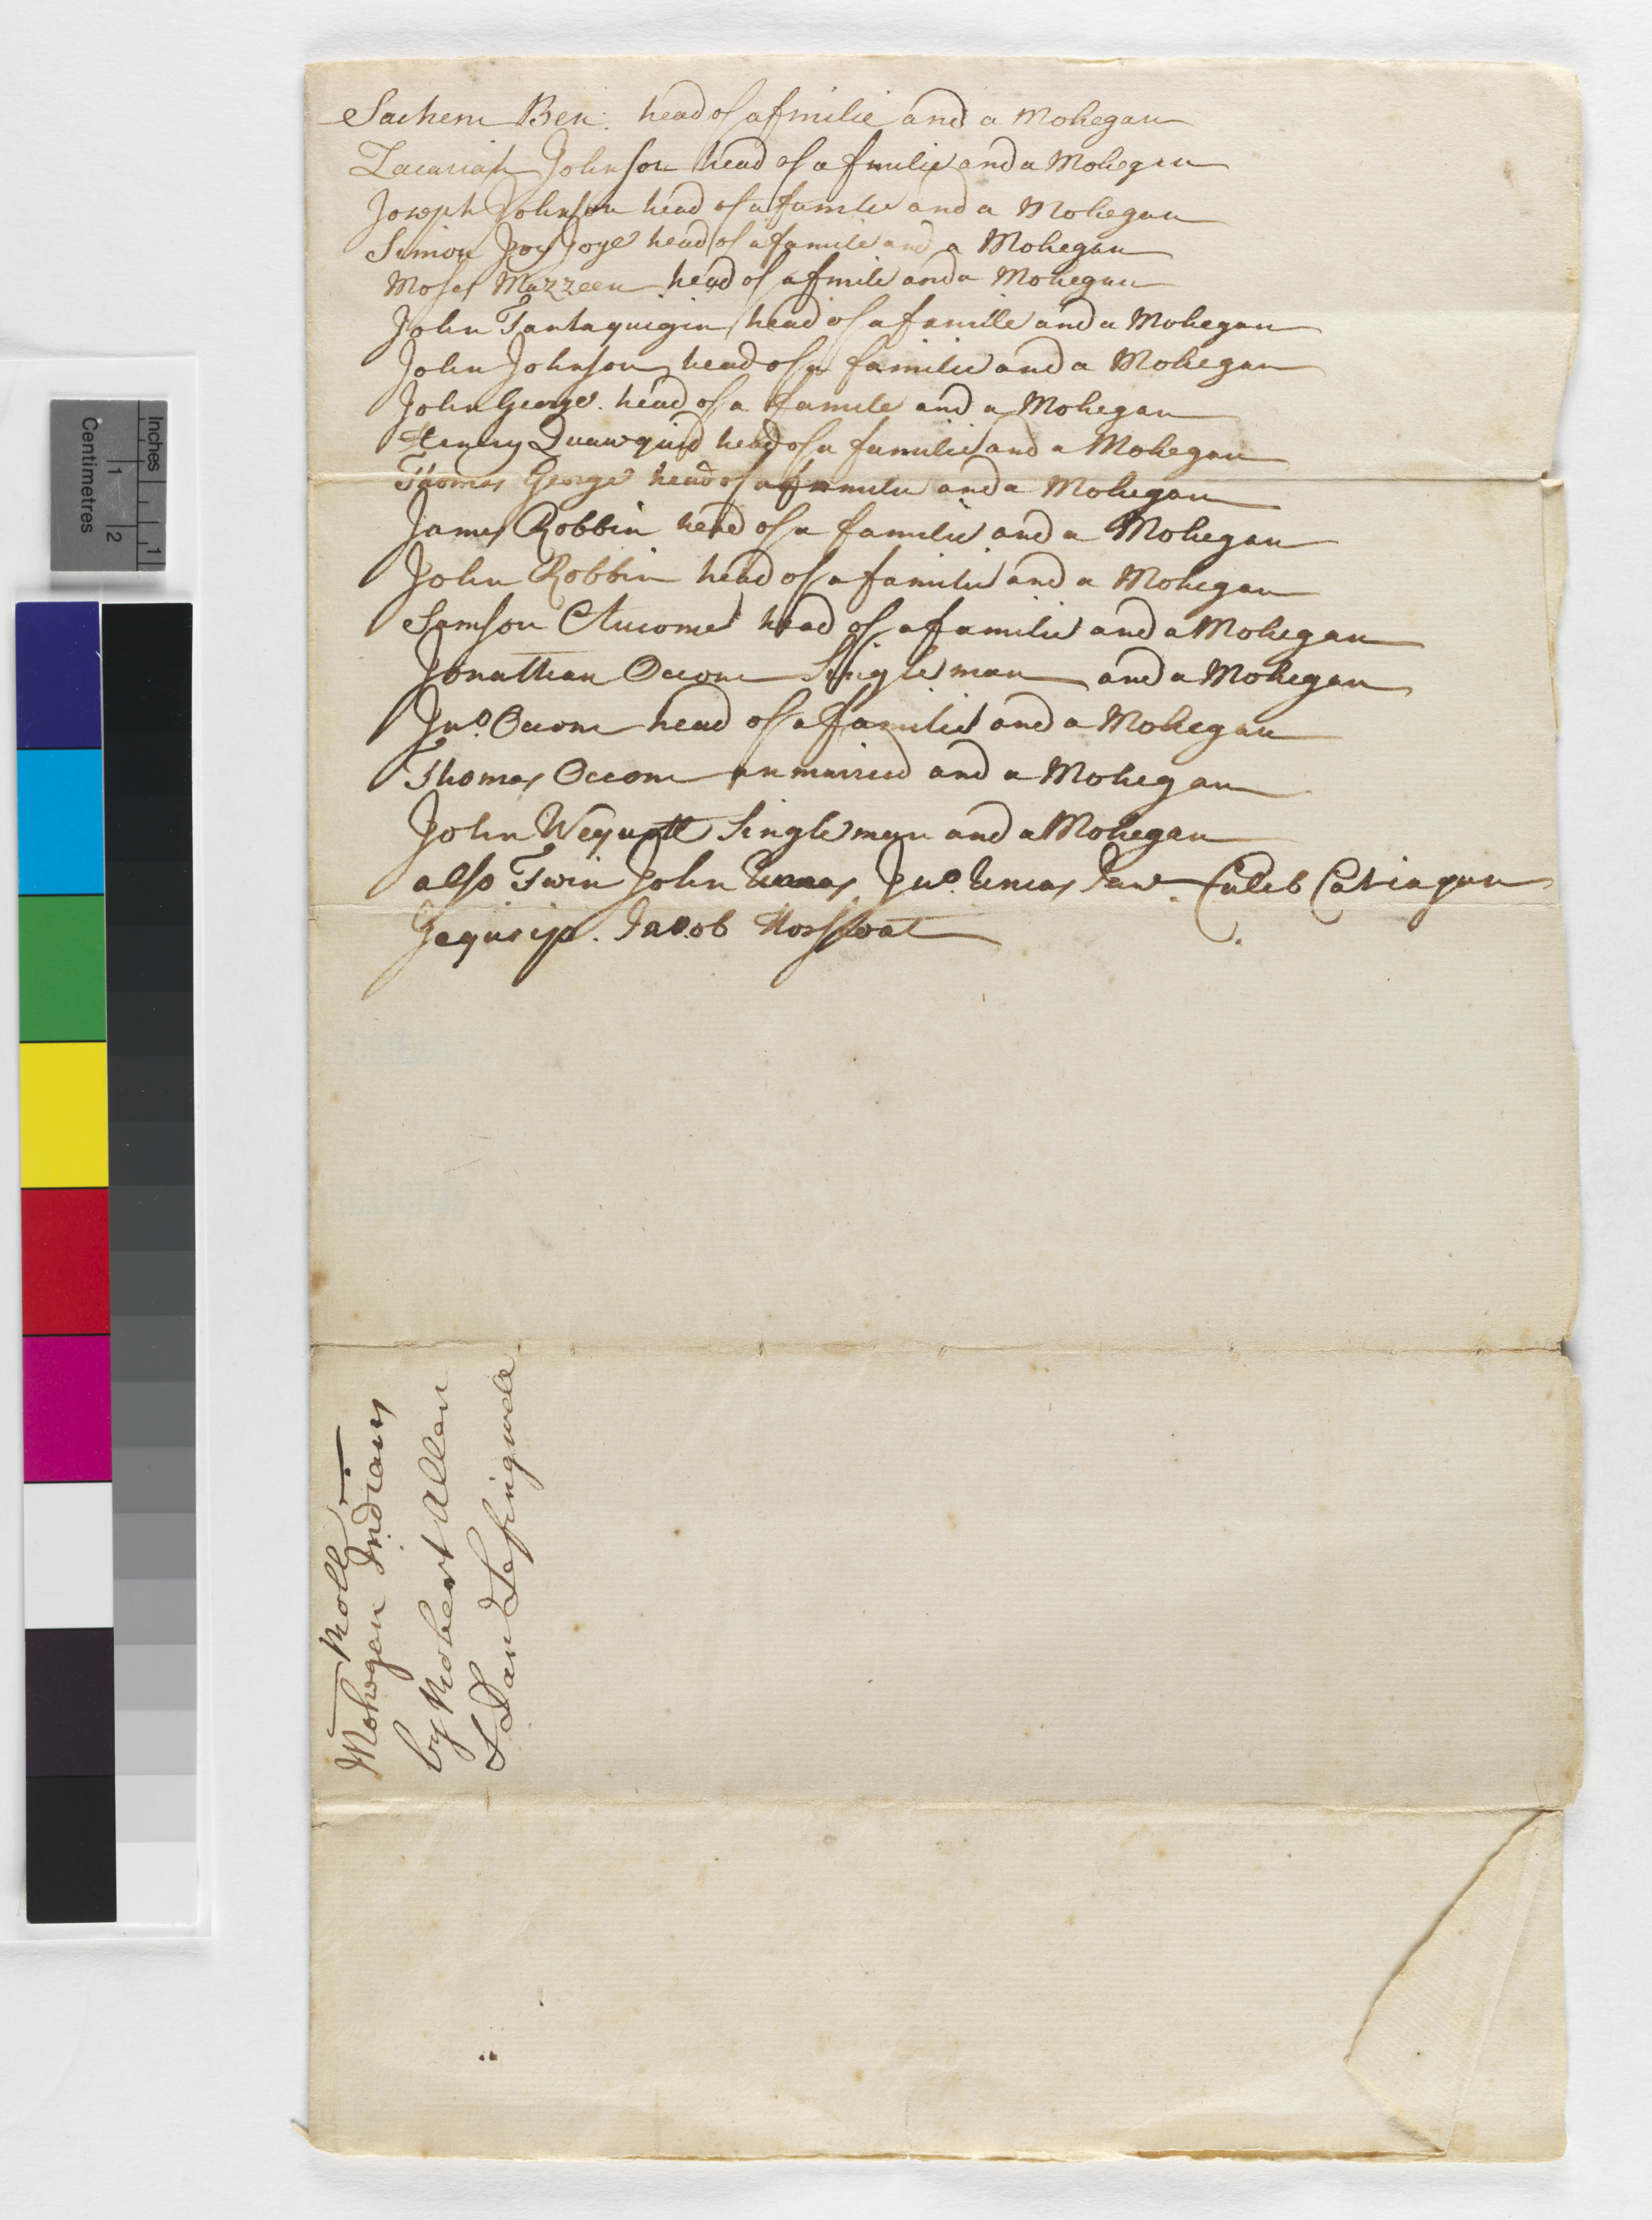 Sachem Ben: head of a fmilie and a Mohegan
Zacariah Johnson head of a fmilie and a Mohegan
Joseph Johnson head of a familie and a Mohegan
Simon Joy Joye head of a famile and a Mohegan
Moses Mazzeen head of a fmile and a Mohegan
John Tantaquigin head of a famile and a Mohegan
John Johnson head of a familie and a Mohegan
John George. head of a famile and a Mohegan
Henry Quawquid head of a familie and a Mohegan
Thomas George head of a familie and a Mohegan
James Robbin head of a familie and a Mohegan
John Robbin head of a familie and a Mohegan
Samson head of a familie and a Mohegan
Jonathan Occom Single man and a Mohegan
Jno. Occom head of a familie and a Mohegan
Thomas Occom unmarried and a Mohegan
John Single man and a Mohegan
also Twin John Uncas, Jno. Uncas Caleb
Jacob
Moll
Mohegan Indians
by Robert Allen
& Sam Lefingwell
Inches
1
Centimetres
1
2